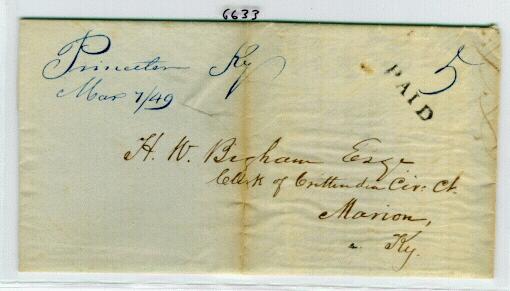 6633
Princeton Ky
Mar 7/49
5
PAID
H. W. Bigham Esqr
Clerk of Crittenden Cir: Ct.
Marion,
Ky.